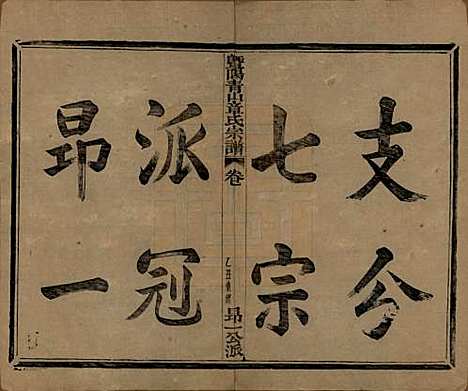 支分
七宗
暨陽青山章氏宗譜 卷 乙丑重修 昂一公派
派冠
昂一